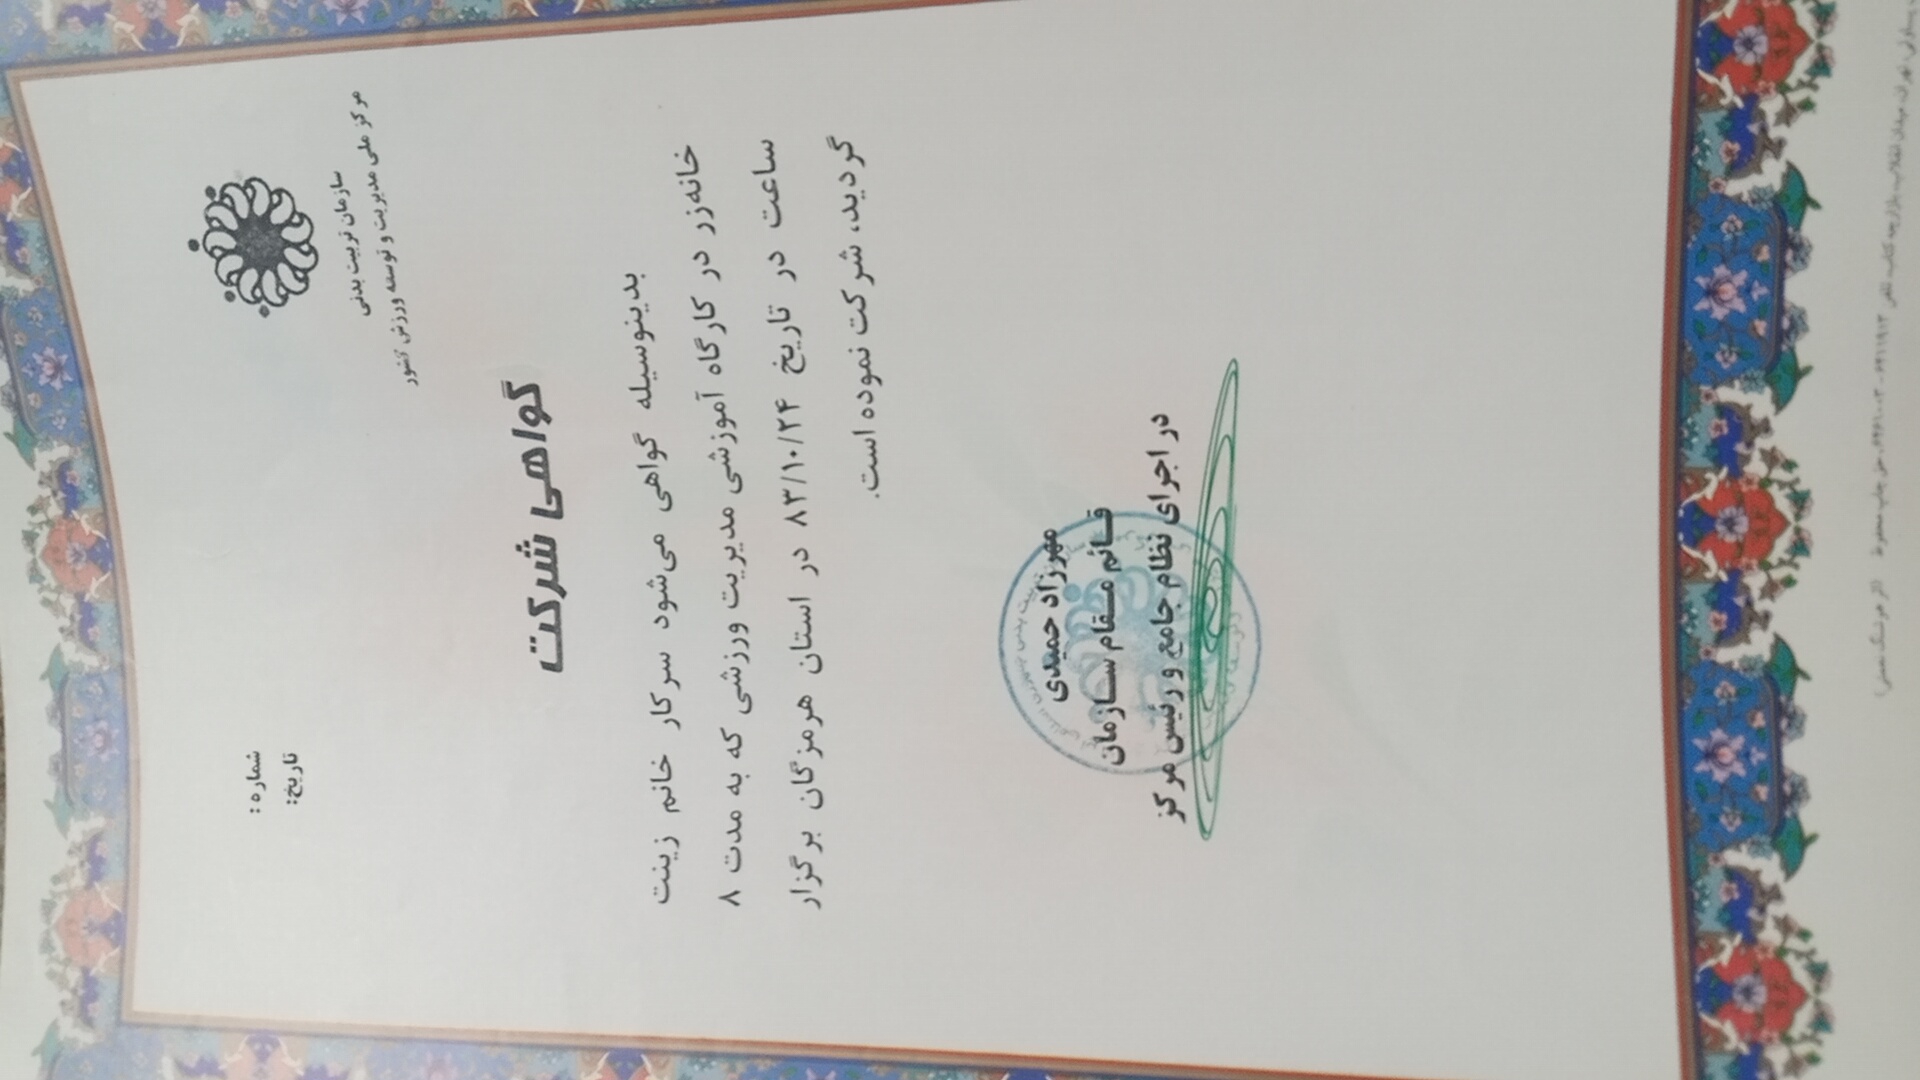 سازمان تربیت بدنی
مرکز ملی مدیریت و توسعه ورزش کشور
شماره:
تاریخ:
گواهی شرکت
بدینوسیله گواهی می‌شود سرکار خانم زینت
خانه‌زر در کارگاه آموزشی مدیریت ورزشی که به مدت ۸
ساعت در تاریخ ۸۳/۱۰/۲۴ در استان هرمزگان برگزار
گردید، شرکت نموده است.
مهرزاد حمیدی
قائم مقام سازمان
در اجرای نظام جامع و رئیس مرکز